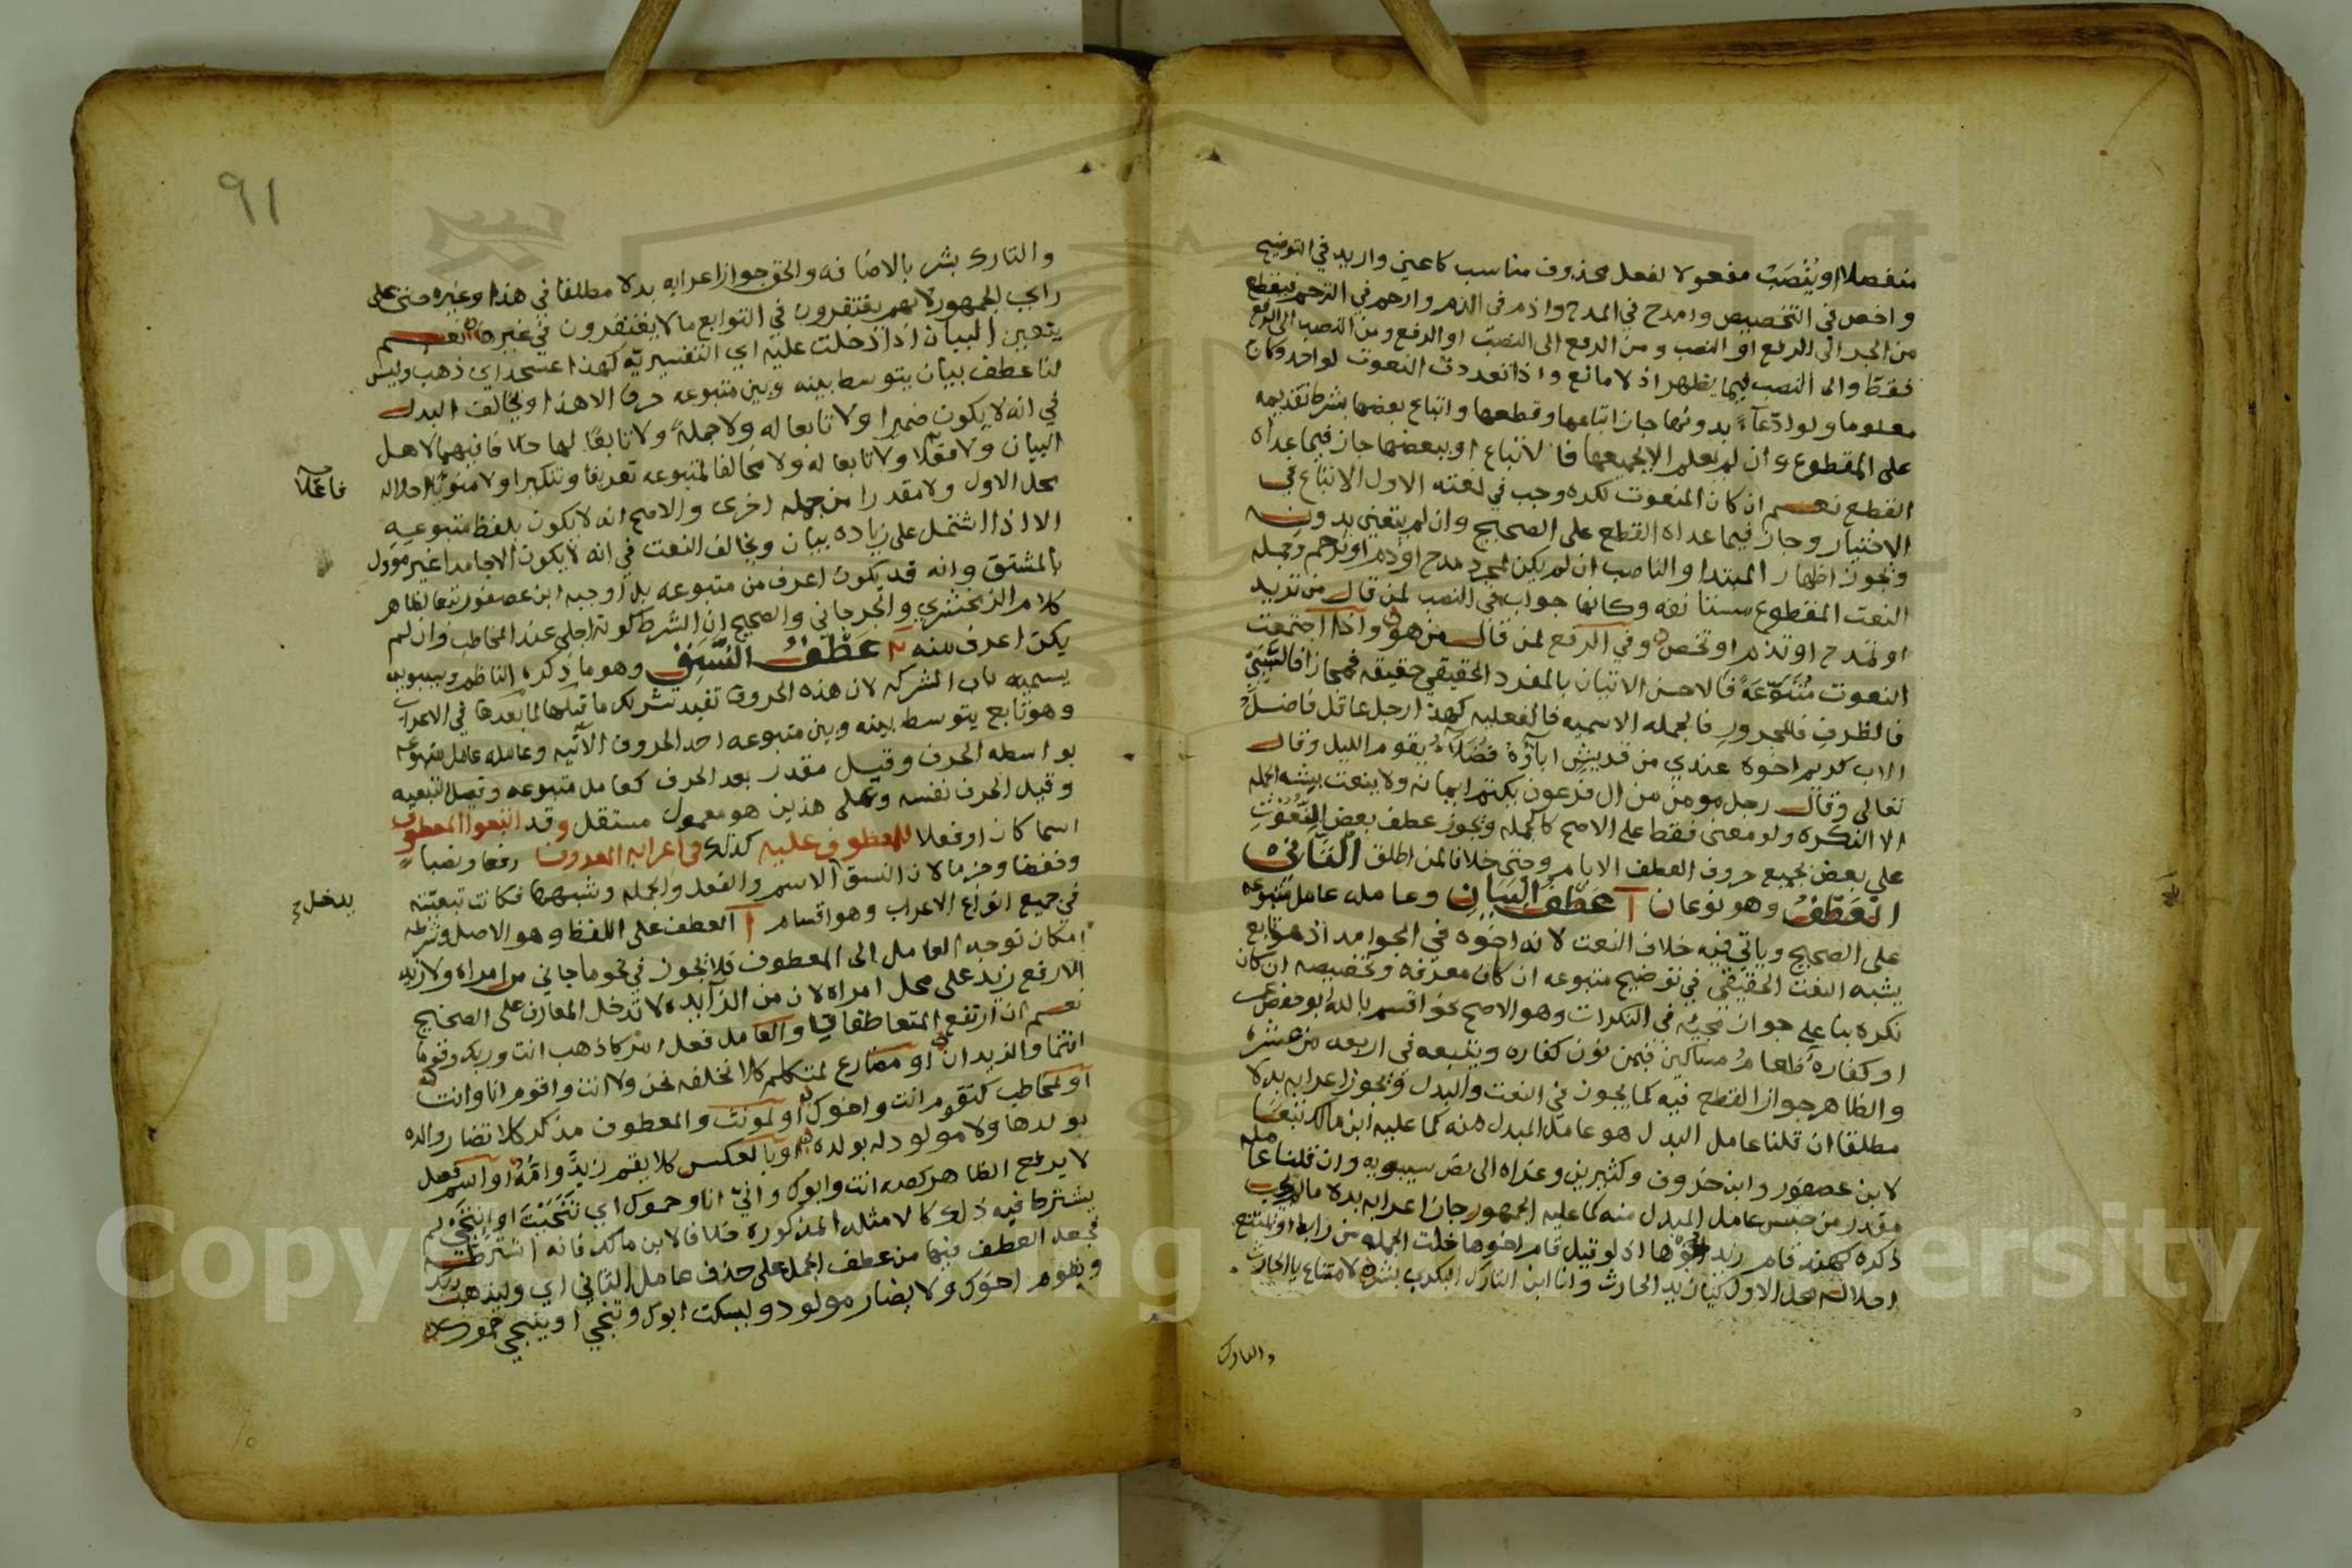 منفصلا او يُنْصَبُ مفعولا لفعل محذوف مناسب كاعني واريد في التوضيح
واخص في التخصيص وامدح في المدح واذم في الذم وارحم في الترحم فيقطع
من الجر الى الرفع او النصب ومن الرفع الى النصب او الرفع ومن النصب الى الرفع
فقط والى النصب فيما يظهر اذ لا مانع واذا تعددت النعوت لواحد وكان
معلوما ولو ادعاءً بدونها جاز اتباعها وقطعها واتباع بعضها بشرط تقديمه
على المقطوع وان لم يعلم الا بجميعها فالاتباع او ببعضها جاز فيما عداه
القطع نعم ان كان المنعوت نكرة وجب في نعته الاول الاتباع في
الاختيار وجاز فيما عداه القطع على الصحيح وان لم يتعين بدونه
ويجوز اظهار المبتدا والناصب ان لم يكن لمجرد مدح او ذم او ترحم وجملة
النعت المقطوع مستانفه وكانها جواب في النصب لمن قال من تريد
او تمدح او تذم او تخص وفي الرفع لمن قال من هو واذا اجتمعت
النعوت مُتَنَوِّعَةً فالاحسن الاتيان بالمفرد الحقيقي حقيقه فمجازا فالسَّبَبيّ
فالظرفِ فالمجرورِ فالجمله الاسميه فالفعليه كهذا رجل عاقل فاضلُ
الاب كريم اخوه عندي من قريشٍ اباؤهُ فُضَلاءُ يقوم الليل وقال
تعالى وقال رجل مومن من ال فرعون يكتم ايمانه ولا ينعت بشبه الجمله
الا النكره ولو معنى فقط على الاصح كالجمله ويجوز عطف بعض النُّعُوتِ
على بعض بجميع حروف العطف الا ام وحتى خلافا لمن اطلق الثَّانِيْ
العَطْفُ وهو نوعان آ عَطْفُ البَيَانِ وعامله عامل متبوعه
على الصحيح وياتي فيه خلاف النعت لانه اخوه في الجوامد اذ هو تابع
يشبه النعت الحقيقي في توضيح متبوعه ان كان معرفه وتخصيصه ان كان
نكره بنا على جواز مجيئه في النكرات وهو الاصح نحو اقسم بالله ابو حفص عمر
او كفارةٌ طعامُ مساكين فيمن نون كفاره ويتبعه في اربعه من عشره
والظاهر جواز القطع فيه كما يجوز في النعت والبدل ويجوز اعرابه بدلا
مطلقا ان قلنا عامل البدل هو عامل المبدل منه كما عليه ابن مالك تبعا
لابن عصفور وابن خروف وكثيرين وعزاه الى نص سيبويه وان قلنا عامله
مقدر من جنس عامل المبدل منه كما عليه الجمهور جاز اعرابه بدلا ما لم يجب
ذكره كهند قام زيد اخوها اذ لو قيل قام اخوها خلت الجمله من رابط او يمتنع
احلاله محل الاول كيا زيد الحارث وانا ابن التارك البكري بشر لامتناع يا الحارث
والتارك
٩١
والتارك بشر بالاضافه والحق جواز اعرابه بدلا مطلقا في هذا وغيره حتى على
راي الجمهور لانهم يغتفرون في التوابع ما لا يغتفرون في غيرها نعم
يتعين البيان اذا دخلت عليه اي التفسيريه كهذا عسجد اي ذهب وليس
لنا عطف بيان يتوسط بينه وبين متبوعه حرف الا هذا ويخالف البدل
في انه لا يكون ضميرا ولا تابعا له ولا جملةً ولا تابعًا لها خلافا فيهما لاهل
البيان ولا فعلا ولا تابعا له ولا مخالفا لمتبوعه تعريفا وتنكيرا ولا منويا احلاله
محل الاول ولا مقدرا من جمله اخرى والاصح انه لا يكون بلفظ متبوعه
الا اذا اشتمل على زياده بيان ويخالف النعت في انه لا يكون الا جامدا غير موول
بالمشتق وانه قد يكون اعرف من متبوعه بل اوجبه ابن عصفور تبعا لظاهر
كلام الزمخشري والجرجاني والصحيح ان الشرط كونه اجلى عند المخاطب وان لم
يكن اعرف منه ٢ عَطْفُ النَّسَقِ وهو ما ذكره الناظم وسيبويه
يسميه باب الشركه لان هذه الحروف تفيد تشريك ما قبلها لما بعدها في الاعراب
وهو تابع يتوسط بينه وبين متبوعه احد الحروف الآتيه وعامله عامل متبوعه
بواسطه الحرف وقيل مقدر بعد الحرف كعامل متبوعه وقيل التبعيه
وقيل الحرف نفسه وعلى هذين هو معمول مستقل وقد اتبعوا المعطوف
اسما كان او فعلا للمعطوف عليه كذلك في اعرابه المعروف رفعا ونصبا
وخفضا وجزما لان النسق الاسم والفعل والجمله وشبهها فكانت تبعيته
في جميع انواع الاعراب وهو اقسام آ العطف على اللفظ وهو الاصل وشرطه
امكان توجه العامل الى المعطوف فلا يجوز في نحو ما جاني من امراه ولا زيد
الا رفع زيد على محل امراه لان من الزآيده لا تدخل المعارف على الصحيح
نعم ان ارتفع المتعاطفان والعامل فعل امر كاذهب انت وربك وقوما
انتما والزيدان او مضارع لمتكلم كلا نخلفه نحن ولا انت واقوم انا وانت
او لمخاطب كتقوم انت واخوك او لمونث والمعطوف مذكر كلا تضار والده
بولدها ولا مولود له بولده او بالعكس كلا يقم زيدٌ وامُّهُ او اسم فعل
لا يرفع الظاهر كصه انت وابوك وانيّ انا وحموك اي تَنَحَّيْتَ او انتَحَى لم
يشترط فيه ذلك كالامثله المذكوره خلافا لابن مالك فانه اشترطه
فجعل العطف فيها من عطف الجمل على حذف عامل الثاني اي وليذهب ربك
ويقوم اخوك ولا يضار مولود وليسكت ابوك وتنحي او ينتحي حموك
فاعلا
يدخل